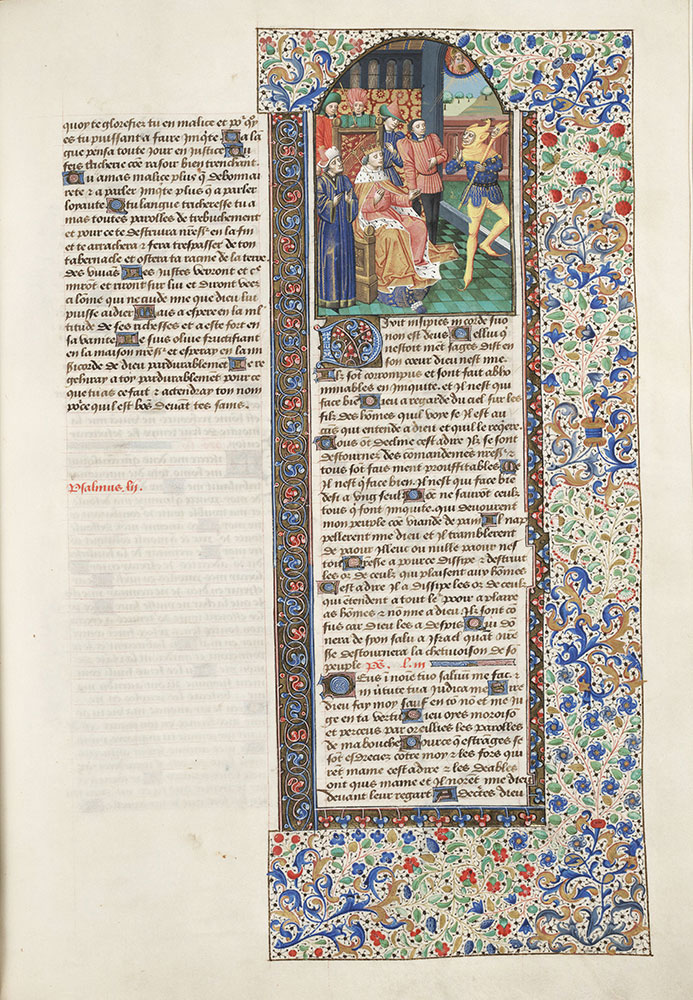 quoy te glorefier tu en malice et po² q̃y
es tu puissant a faire iniq̃te A a la
gue pensa toute jour en justice Tu
feis tricherie cõe rasoir bien trenchant
Tu amas malice plus q̃ debonnai
rete & a parler iniq̃te plus q̃ a parler
loyaute O tu langue tricheresse tu a
mas toutes parolles de trebuchement
et pour ce te destruira nr̃e s² en la fin
et te arrachera & fera trespasser de ton
tabernacle et ostera ta racine de la terre
des viuãs Les justes verront et cre
mirõt et riront sur lui et diront veez
ci lõme qui ne cuide mie que dieu lui
puisse aidier Mais a espere en la ml
titude de ses richesses et a este fort en
sa vanite Je suis oliue fructifiant
en la maison nr̃e s² et esperay en la mi
sicorde de dieu pardurablemẽt Je re
gehiray a toy pardurablemẽt pour ce
que tu as ce fait & actendray ton nom
po²ce qui l est bõs deuãt tes sains
Psalmus .lij.
Dixit insipiẽs in corde suo
non est deus Cellui q̃
nestoit mĩe sages dist en
son cueur dieu nest mie
Ilz sõt corrompus et sont fait abho
minables en iniquite et il nest qui
face biẽ Dieu a regarde du ciel sur les
filz des hõmes quil voye se il est au
cũs qui entende a dieu et qui le req̃ere
Tous õt decline cest adire ilz se sont
destournez des cõmandemẽs nr̃e s² &
tous sõt fais mĩent prouffitables Ne
il nest q̃ face bien Il nest qui face biẽ
desi a vng seul Dõc ne sauront ceulx
tous q̃ font iniquite qui deuourent
mon peuple cõe viande de pain Ilz nap
pellerent mie dieu et ilz tramblerent
de paour illeuc ou nulle paour nes
toit
les os de ceulx qui plaisent aux hõmes
Cest adire il a dissipe les os de ceulx
qui ẽtendent a tout le² pooir a plaire
as hõmes & nõ mie a dieu Ilz sont cõ
fus car dieu les a despis Qui dõ
nera de syon salu a israel quãt nr̃e
s² destournera la chetiuoison de sõ
peuple Ps. liij
Deus i nõie tuo saluũ me fac &
in uirtute tua judica me Sire
dieu fay moy sauf en tõ nõ et me ju
ge en ta vertu Dieu oyes mõroisõ
et percois par oreilles les parolles
de ma bouche Pource q̃ estrãges se
sõt esdreciez cõtre moy & les fors qui
rẽt mame cest adire & les deables
ont quis mame et ilz norẽt mie dieu
deuant leur regart A dectes dieu